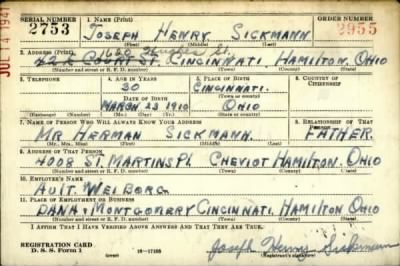 SERIAL NUMBER 1. NAME (Print) ORDER NUMBER
2753 JOSEPH HENRY SICKMANN 2955
(First) (Middle) (Last)
2. ADDRESS (Print) 1620 Hughes St.
422 COURT ST. CINCINNATI, HAMILTON, OHIO
(Number and street or R. F. D. number) (Town) (County) (State)
3. TELEPHONE 4. AGE IN YEARS 5. PLACE OF BIRTH 6. COUNTRY OF CITIZENSHIP
30 CINCINNATI.
DATE OF BIRTH (Town or county)
MARCH 23 1910 OHIO
(Exchange) (Number) (Mo.) (Day) (Yr.) (State or country)
7. NAME OF PERSON WHO WILL ALWAYS KNOW YOUR ADDRESS 8. RELATIONSHIP OF THAT PERSON
MR HERMAN SICKMANN. FATHER.
(Mr., Mrs., Miss) (First) (Middle) (Last)
9. ADDRESS OF THAT PERSON
4008 ST. MARTINS PL CHEVIOT HAMILTON, OHIO
(Number and street or R. F. D. number) (Town) (County) (State)
10. EMPLOYER'S NAME
AULT. WEIBORG.
11. PLACE OF EMPLOYMENT OR BUSINESS
DANA & MONTGOMERY CINCINNATI. HAMILTON OHIO
(Number and street or R. F. D. number) (Town) (County) (State)
I AFFIRM THAT I HAVE VERIFIED ABOVE ANSWERS AND THAT THEY ARE TRUE.
REGISTRATION CARD
D. S. S. Form 1 (over) 16—17105 Joseph Henry Sickmann
(Registrant's signature)
JUL 14 194